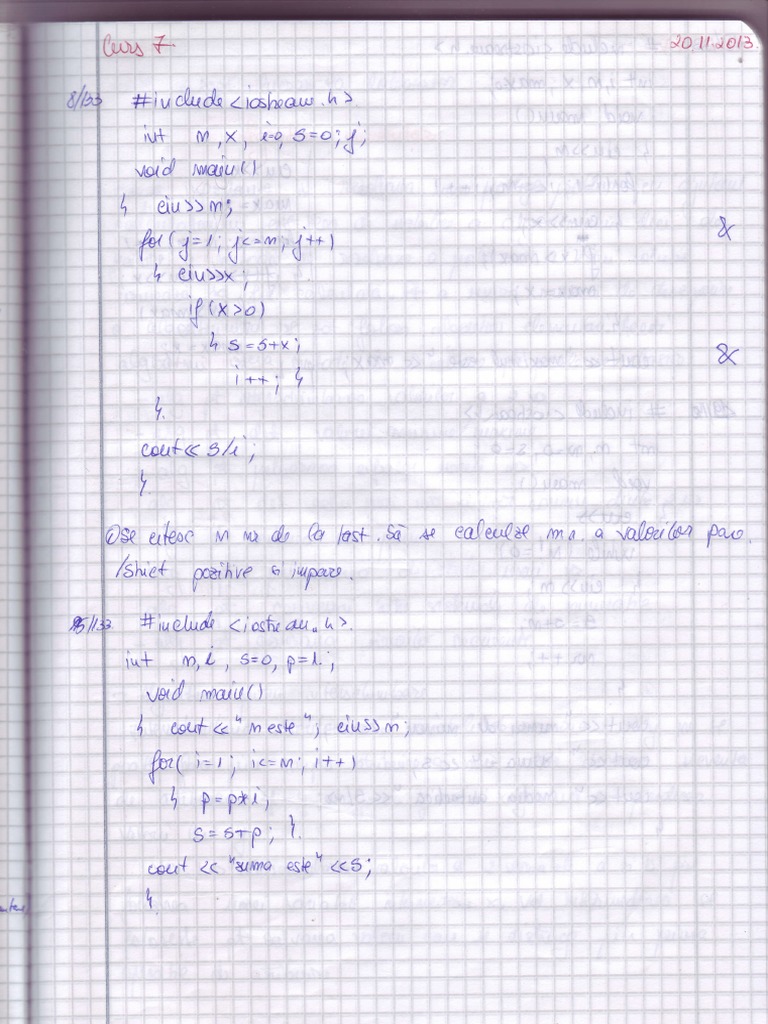 Curs 7. 20.11.2013.
8/133 #include <iostream.h>
int n, x, i=0, s=0; j;
void main()
{ cin>>n;
for(j=1; j<=n; j++)
{ cin>>x;
if(x>0)
{ s=s+x;
i++; }
}.
cout<< s/i;
}.
Se citesc n nr de la tast. Să se calculze m.a. a valorilor pare
/strict pozitive și impare.
15/133 #include <iostream.h>.
int n, i, s=0, p=1.;
void main()
{ cout<<"n este"; cin>>n;
for( i=1; i<=n; i++)
{ p=p*i;
s=s+p; }.
cout << "suma este" <<s;
}
&
&